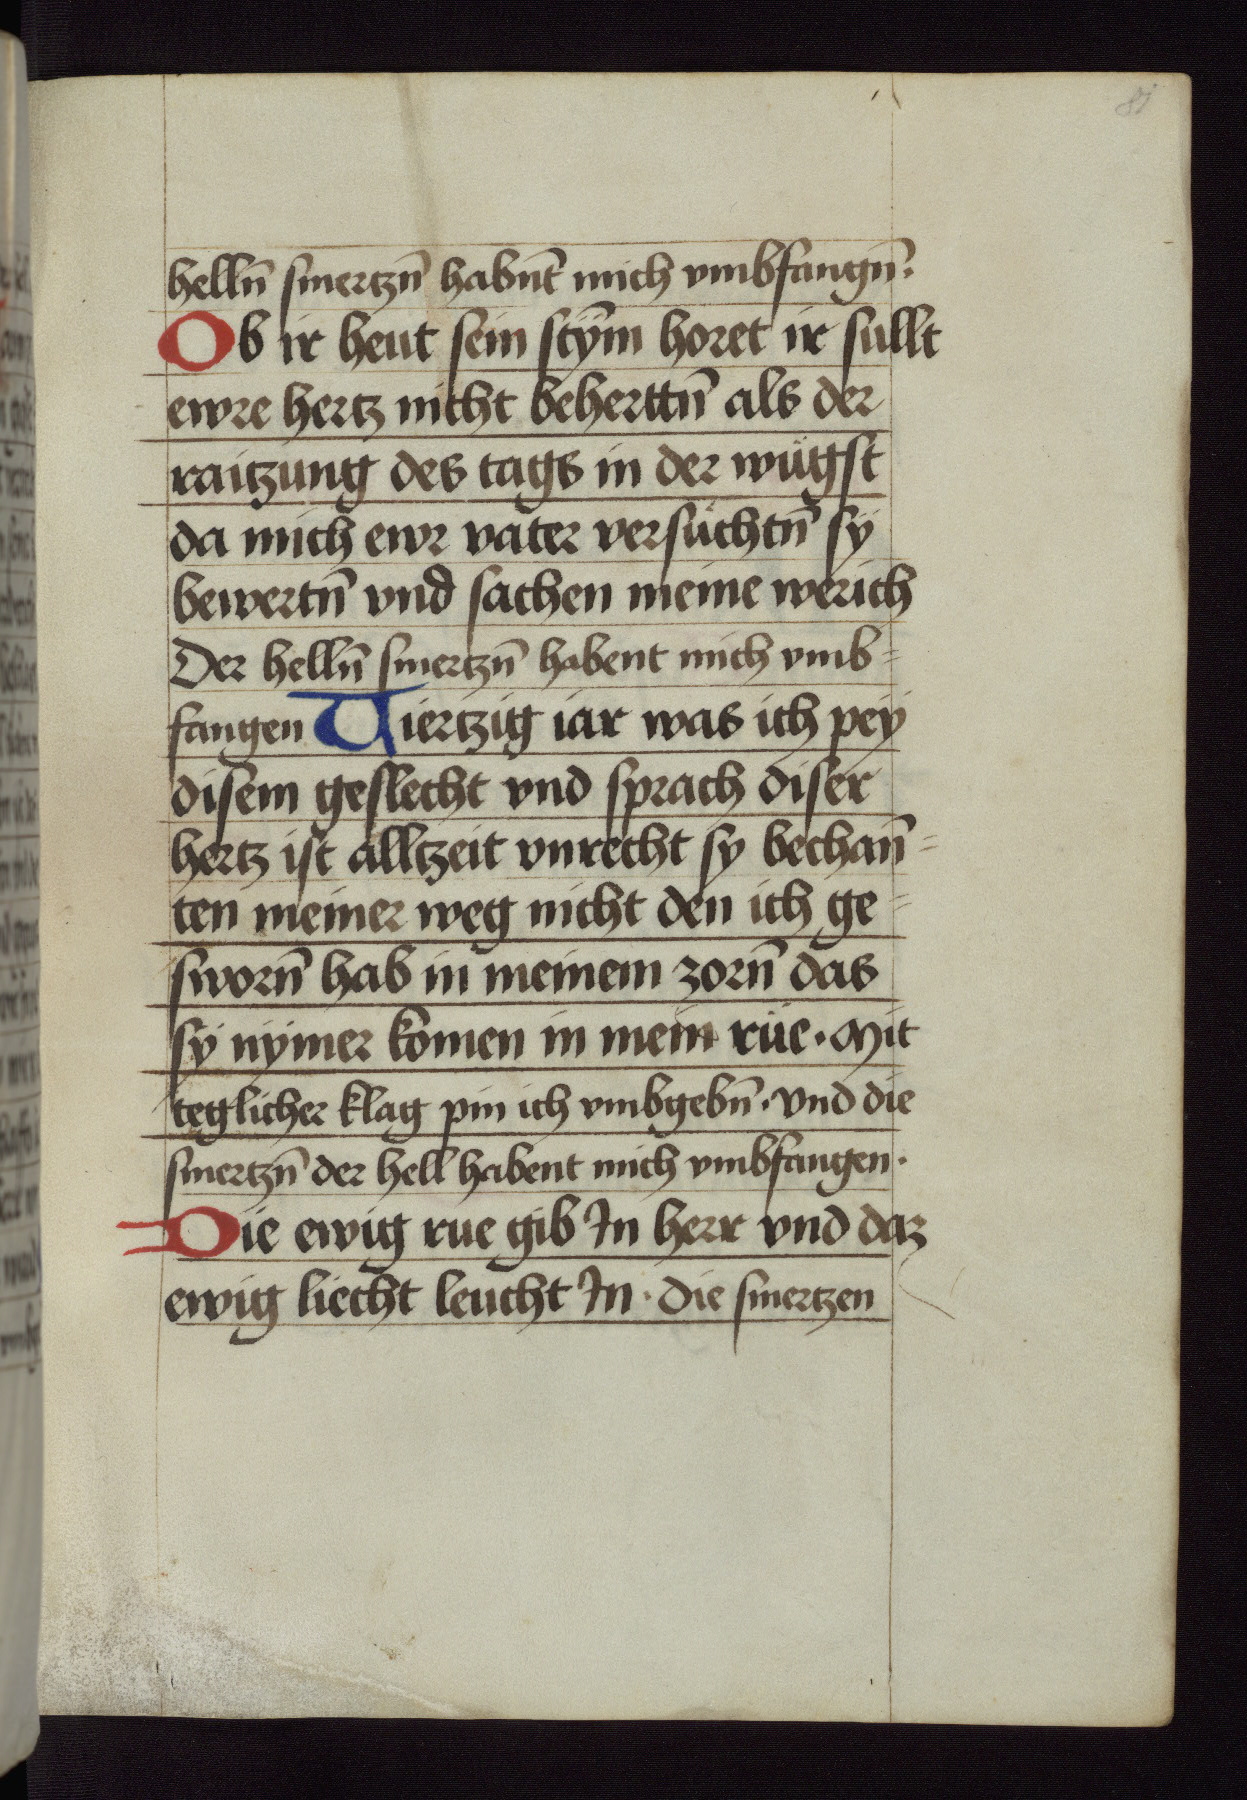 81
helln̄ smertzn̄ habnt̄ mich vmbfangn̄.
Ob ir heut sein stÿm̄ horet ir sullt
ewre hertz nicht beherttn̄ als der
raitzung des tags in der wügst
da mich ewr vater versüchtn̄ sÿ
bewertn̄ vnd sachen meine werich
Der helln̄ smertzn̄ habent mich vmb=
fangen Viertzig iar was ich peÿ
disem geslecht vnd sprach diser
hertz ist alltzeit vnrecht sy bechan̄=
ten meiner weg nicht den ich ge=
sworn̄ hab in meinem zorn̄ das
sÿ nÿmer komen in mein rüe. Mit
teglicher klag pin ich vmbgebn̄. vnd die
smertzn̄ der hell habent mich vmbfangen.
Die ewig rue gib In herr vnd daz
ewig liecht leucht In. Die smertzen